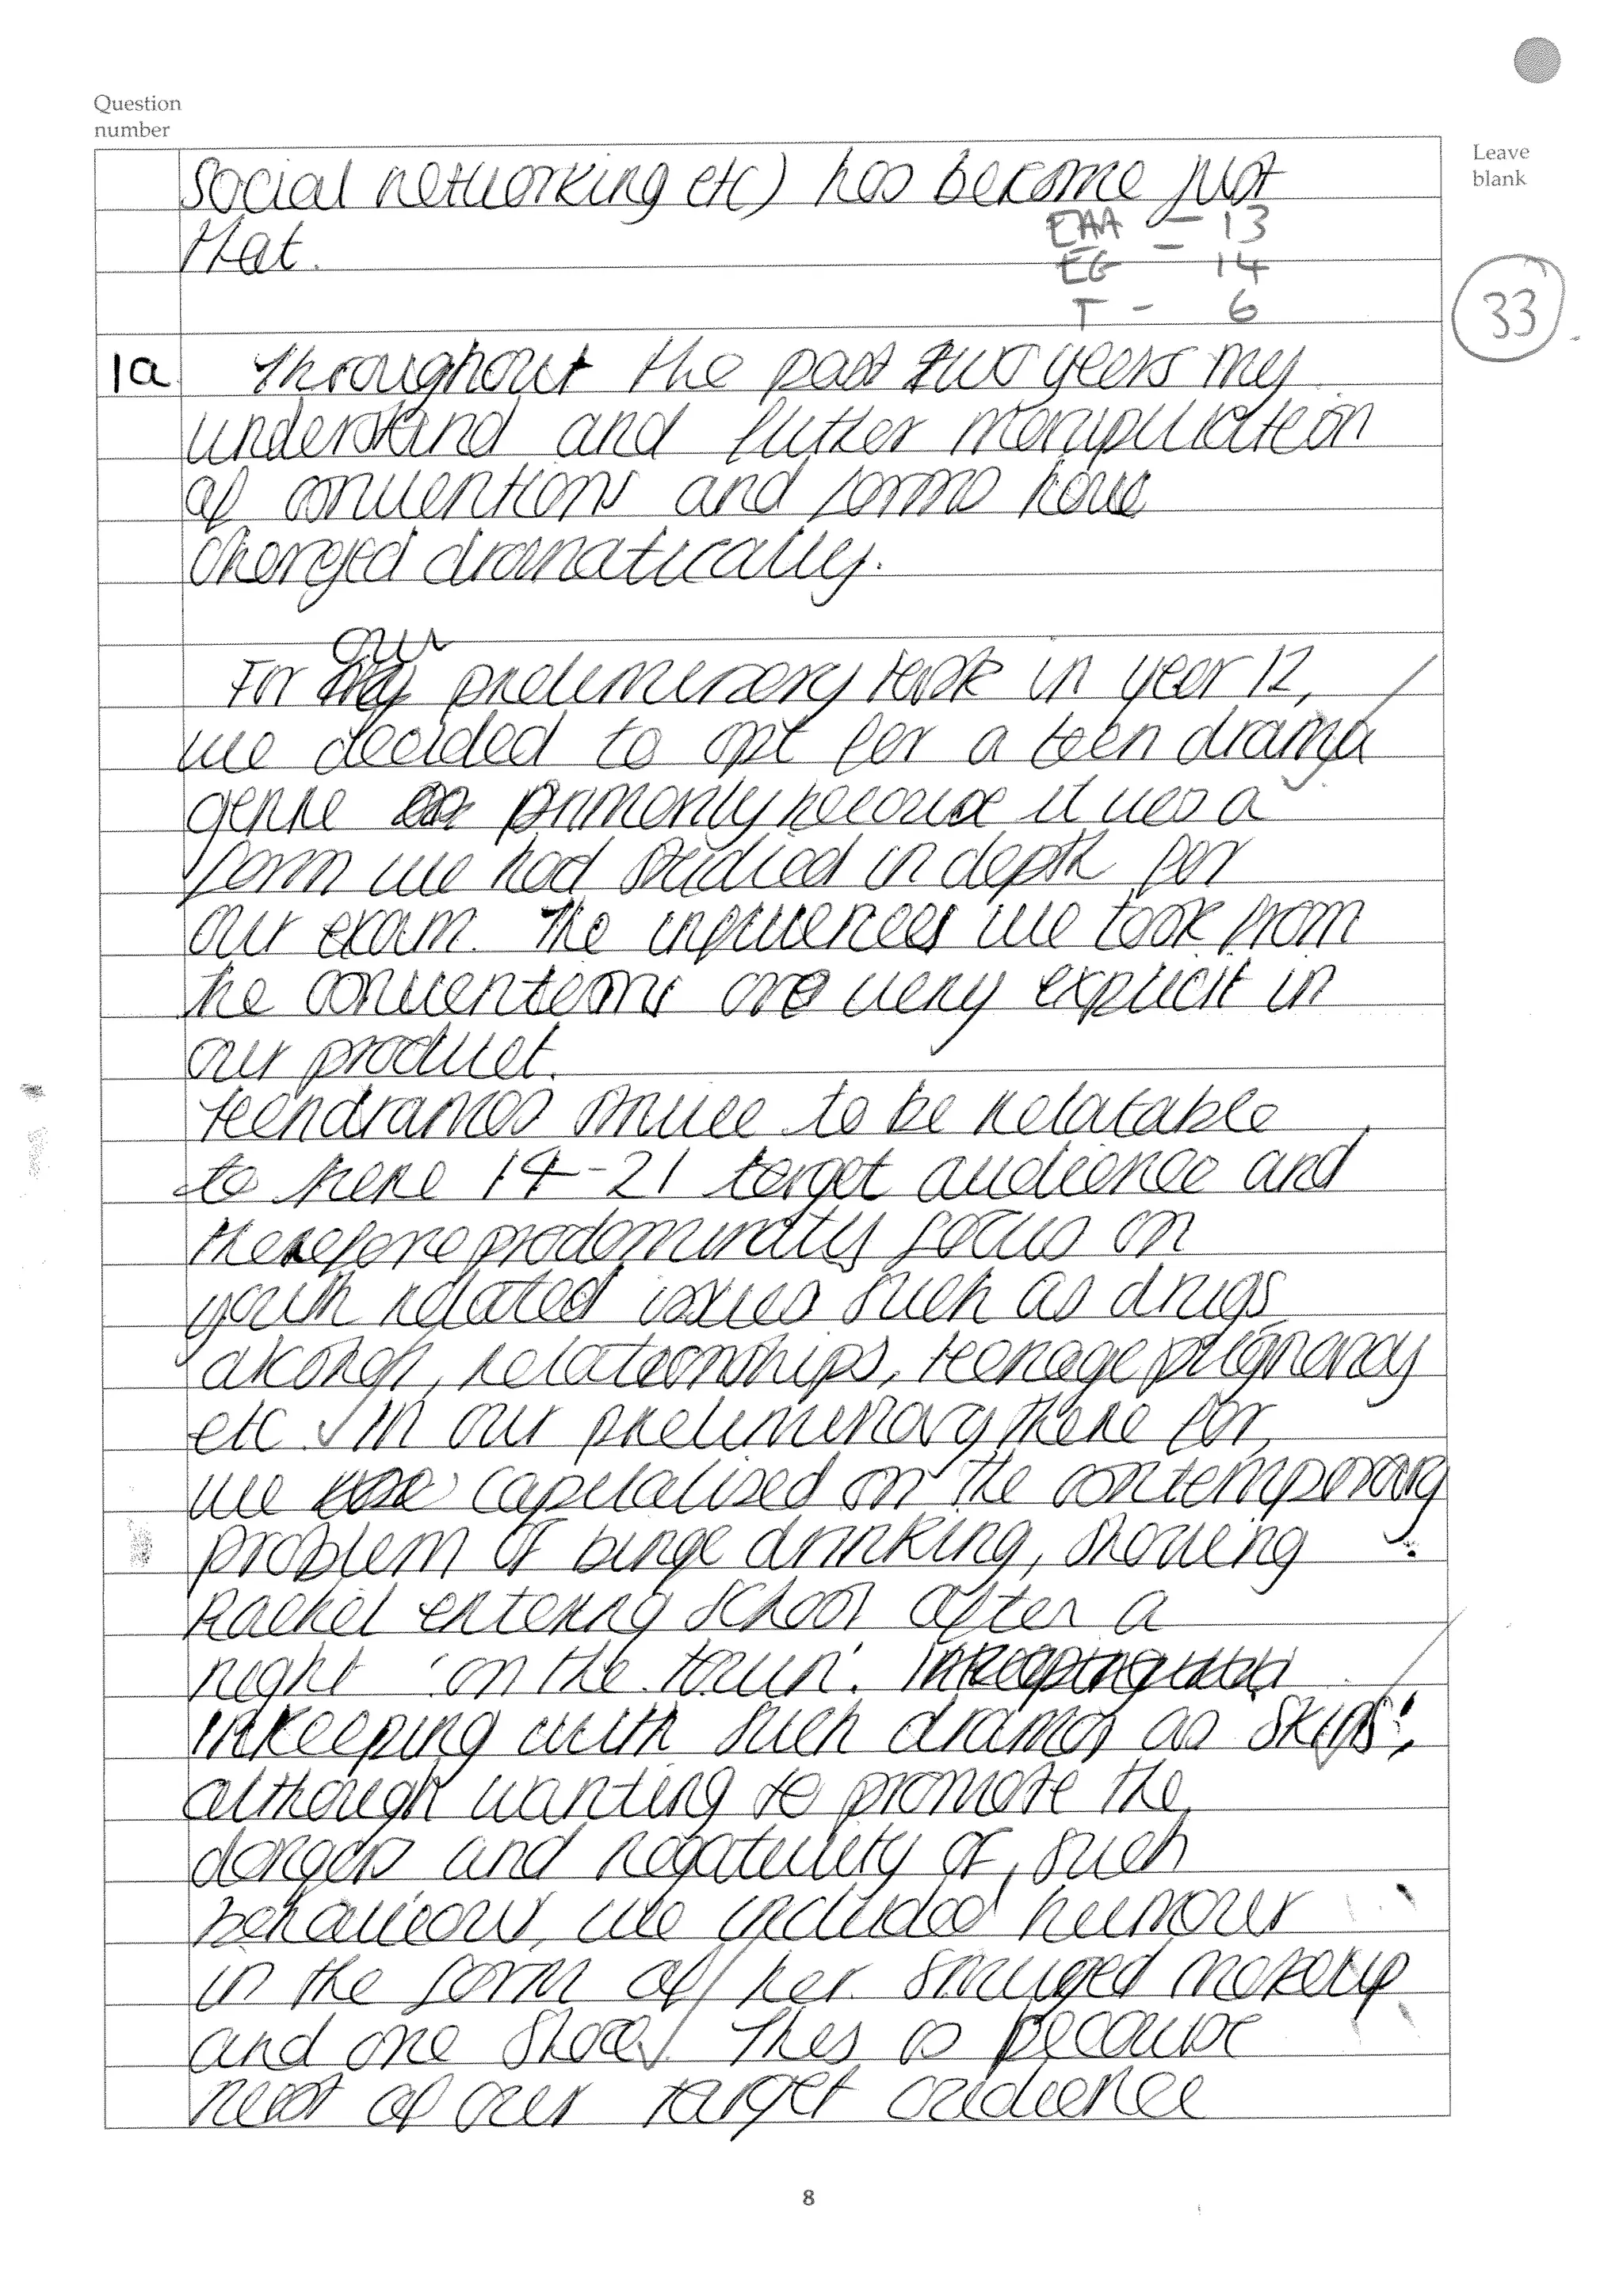 Question
number
Leave
blank
social networking etc) has become just
that.
EAA - 13
EG - 14
T - 6
33
1a Throughout the past two years my
understand and futher manipulation
of conventions and forms have
changed dramatically.
For our preliminerary task in year 12,
we decided to opt for a teen drama
genre primarily because it was a
form we had studied in depth for
our exam. The influences we took from
the conventions are very explicit in
our product.
teendramas strive to be relatable
to there 14-21 target audience and
therefore predominatly focus on
youth related issues such as drugs
alcohol, relationships, teenage pregnancy
etc. In our preliminary there for,
we capitalised on the contemporary
problem of binge drinking, showing
Rachel entering school after a
night 'on the town'.
inkeeping with such dramas as 'Skins',
although wanting to promote the
dangers and negativity of such
behaviour, we included humour
in the form of her smuged makeup
and one shoe. This is because
most of our target audience
8